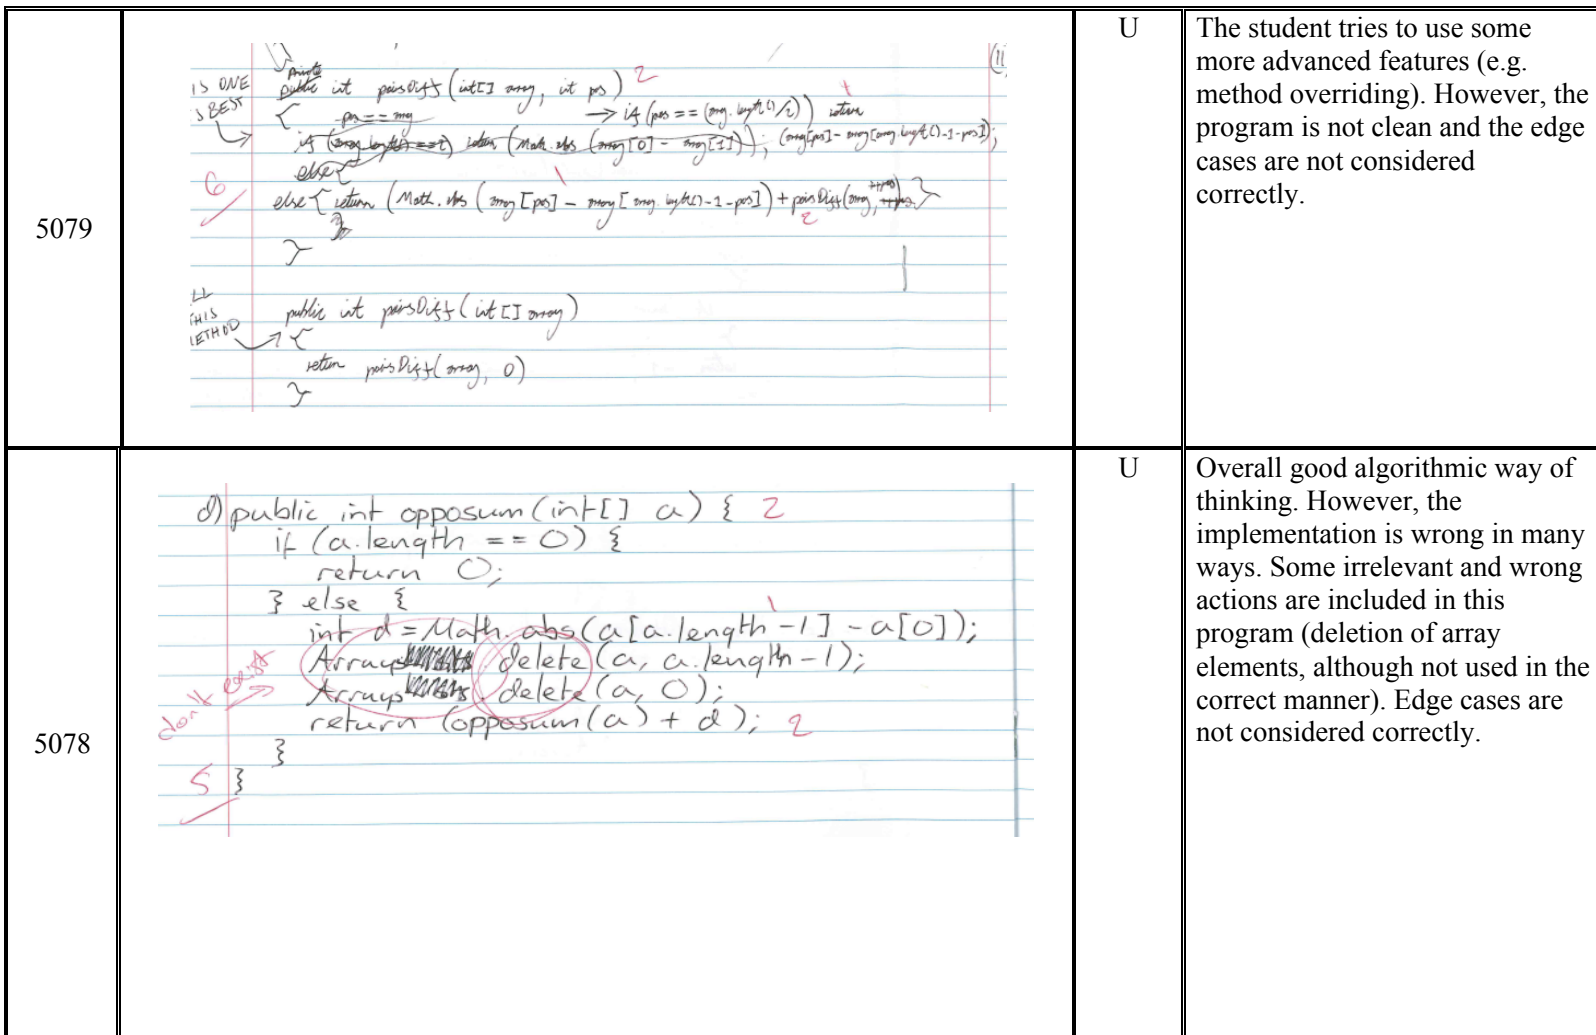 5079
(11
IS ONE
IS BEST
private
public int pairsDiff (int[] array, int pos) 2
{ pos == array → if (pos == (array.length()/2)) return
if (array.length() == 2) return (Math.abs (array[0] - array[1])); (array[pos] - array[array.length()-1-pos]);
else {
6
else { return (Math.abs (array[pos] - array[array.length()-1-pos]) + pairsDiff(array, ++pos) }
1
2
}
}
LL
THIS
METHOD
public int pairsDiff (int[] array)
{
return pairsDiff(array, 0)
}
U
The student tries to use some
more advanced features (e.g.
method overriding). However, the
program is not clean and the edge
cases are not considered
correctly.
5078
d) public int opposum (int[] a) { 2
if (a.length == 0) {
return 0;
} else {
1
int d = Math.abs(a[a.length -1] - a[0]);
Arrays.delete(a, a.length-1);
Arrays.delete(a, 0);
don't exist
return (opposum(a) + d); 2
}
5 }
U
Overall good algorithmic way of
thinking. However, the
implementation is wrong in many
ways. Some irrelevant and wrong
actions are included in this
program (deletion of array
elements, although not used in the
correct manner). Edge cases are
not considered correctly.